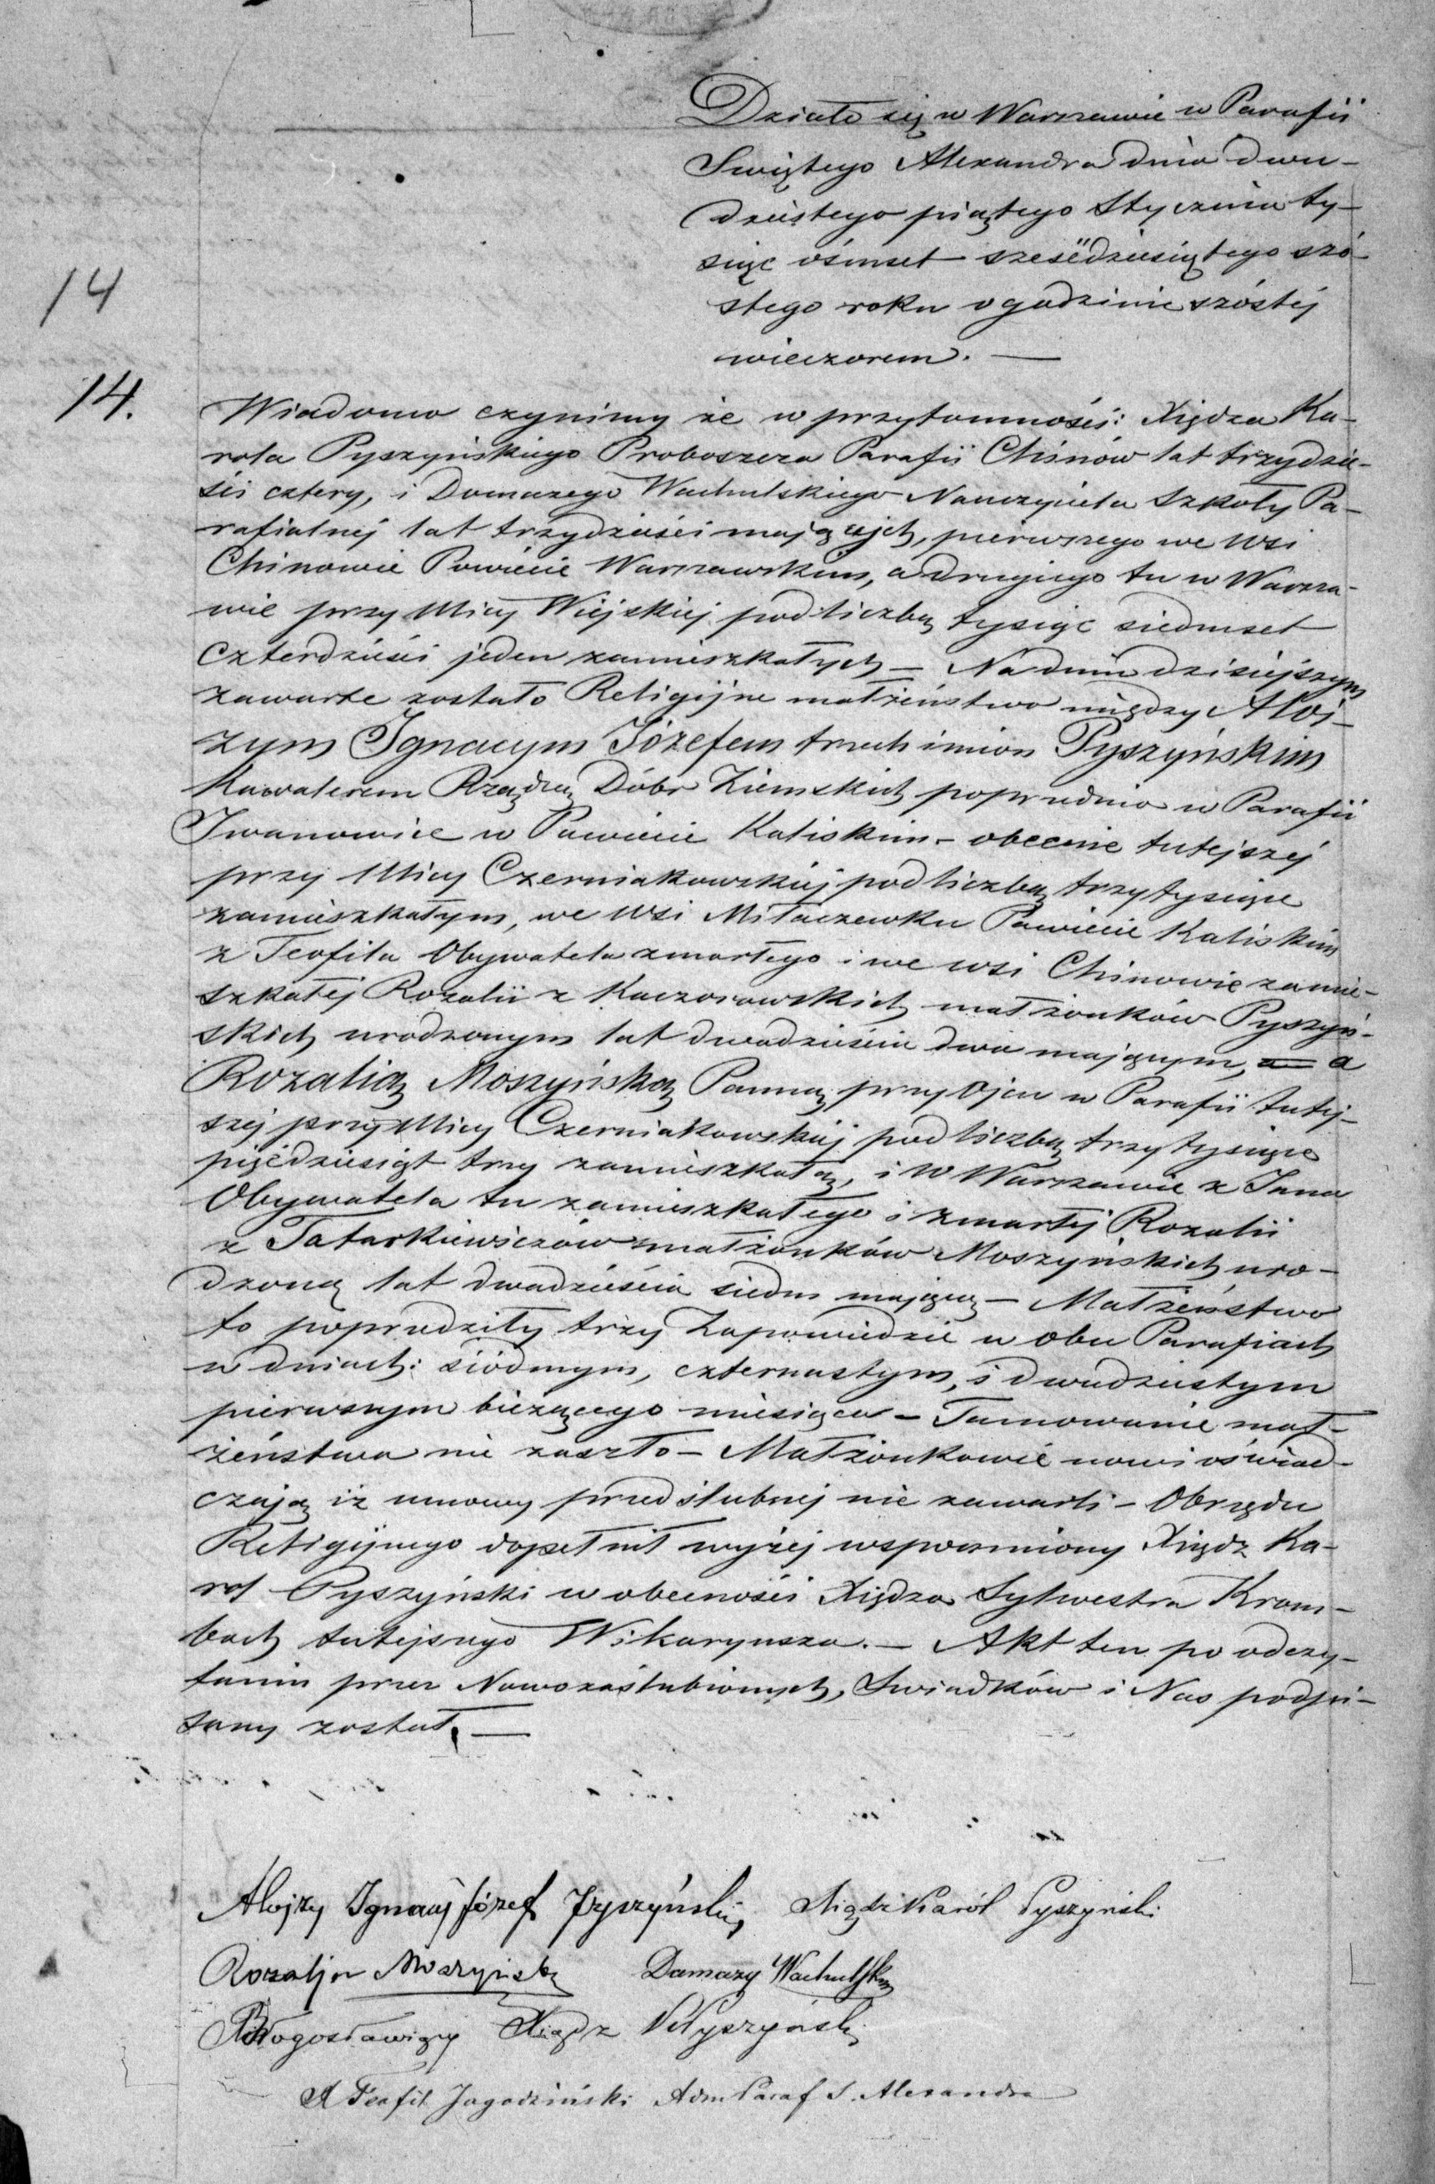 Działo się w Warszawie w Parafii
Swiętego Alexandra dnia dwu-
dziestego piątego Stycznia ty-
siąc ośmset sześćdziesiątego szó-
stego roku o godzinie szóstéj
wieczorem. —
14
14.
Wiadomo czynimy że w przytomności: Xiędza Ka-
rola Pyszyńskiego Proboszcza Parafii Chinów lat trzydzie-
ści cztery, i Damazego Wachulskiego Nauczyciela Szkoły Pa-
rafialnéj lat trzydzieści mających, pierwszego we wsi
Chinowie Powiecie Warszawskim, a drugiego tu w Warsza-
wie przy Ulicy Wiejskiéj pod liczbą tysiąc siedmset
czterdzieści jeden zamieszkałych — Na dniu dzisiéjszym
zawarte zostało Religijne małżeństwo między Aloi-
zym Ignacym Józefem trzech imion Pyszyńskim
Kawalerem Rządzcą Dóbr Ziemskich poprzednio w Parafii
Iwanowice w Powiecie Kaliskim – obecnie tutejszéj
przy Ulicy Czerniakowskiéj pod liczbą trzy tysiące
zamieszkałym, we wsi Miłaczewku Powiecie Kaliskim
z Teofila Obywatela zmarłego i we wsi Chinowie zamie-
szkałéj Rozalii z Kaczorowskich małżonków Pyszyń-
skich urodzonym lat dwadzieścia dwa mającym, a a
Rozalią Moszyńską Panną przy Ojcu w Parafii tutej-
széj przy Ulicy Czerniakowskiéj pod liczbą trzy tysiące
pięćdziesiąt trzy zamieszkałą, i w Warszawie z Jana
Obywatela tu zamieszkałego i zmarłéj Rozalii
z Tatarkiewiczów małżonków Moszyńskich uro-
dzoną lat dwadzieścia siedm mającą — Małżeństwo
to poprzedziły trzy Zapowiedzie w obu Parafiach
w dniach: siódmym, czternastym, i dwudziestym
pierwszym bieżącego miesiąca – Tamowanie mał-
żeństwa nie zaszło – Małżonkowie nowi oświad-
czają iż umowy przedślubnéj nie zawarli – Obrzędu
Religijnego dopełnił wyżéj wspomniony Xiądz Ka-
rol Pyszyński w obecności Xiędza Sylwestra Kram-
bach tutejszego Wikaryusza. — Akt ten po odczy-
taniu przez Nowozaślubionych, Swiadków i Nas podpi-
sany został. —
Alojzy Ignacy Józef Pyszyński, Xiądz Karól Pyszyński
Rozalja Moszyńska Damazy Wachulski
Błogosławiący Xiądz K Pyszyński
X Teofil Jagodziński Adm Paraf S. Alexandra